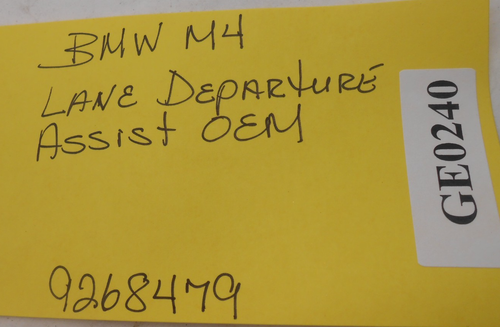 BMW M4
LANE DEPARTURE
ASSIST OEM
9268479
GE0240